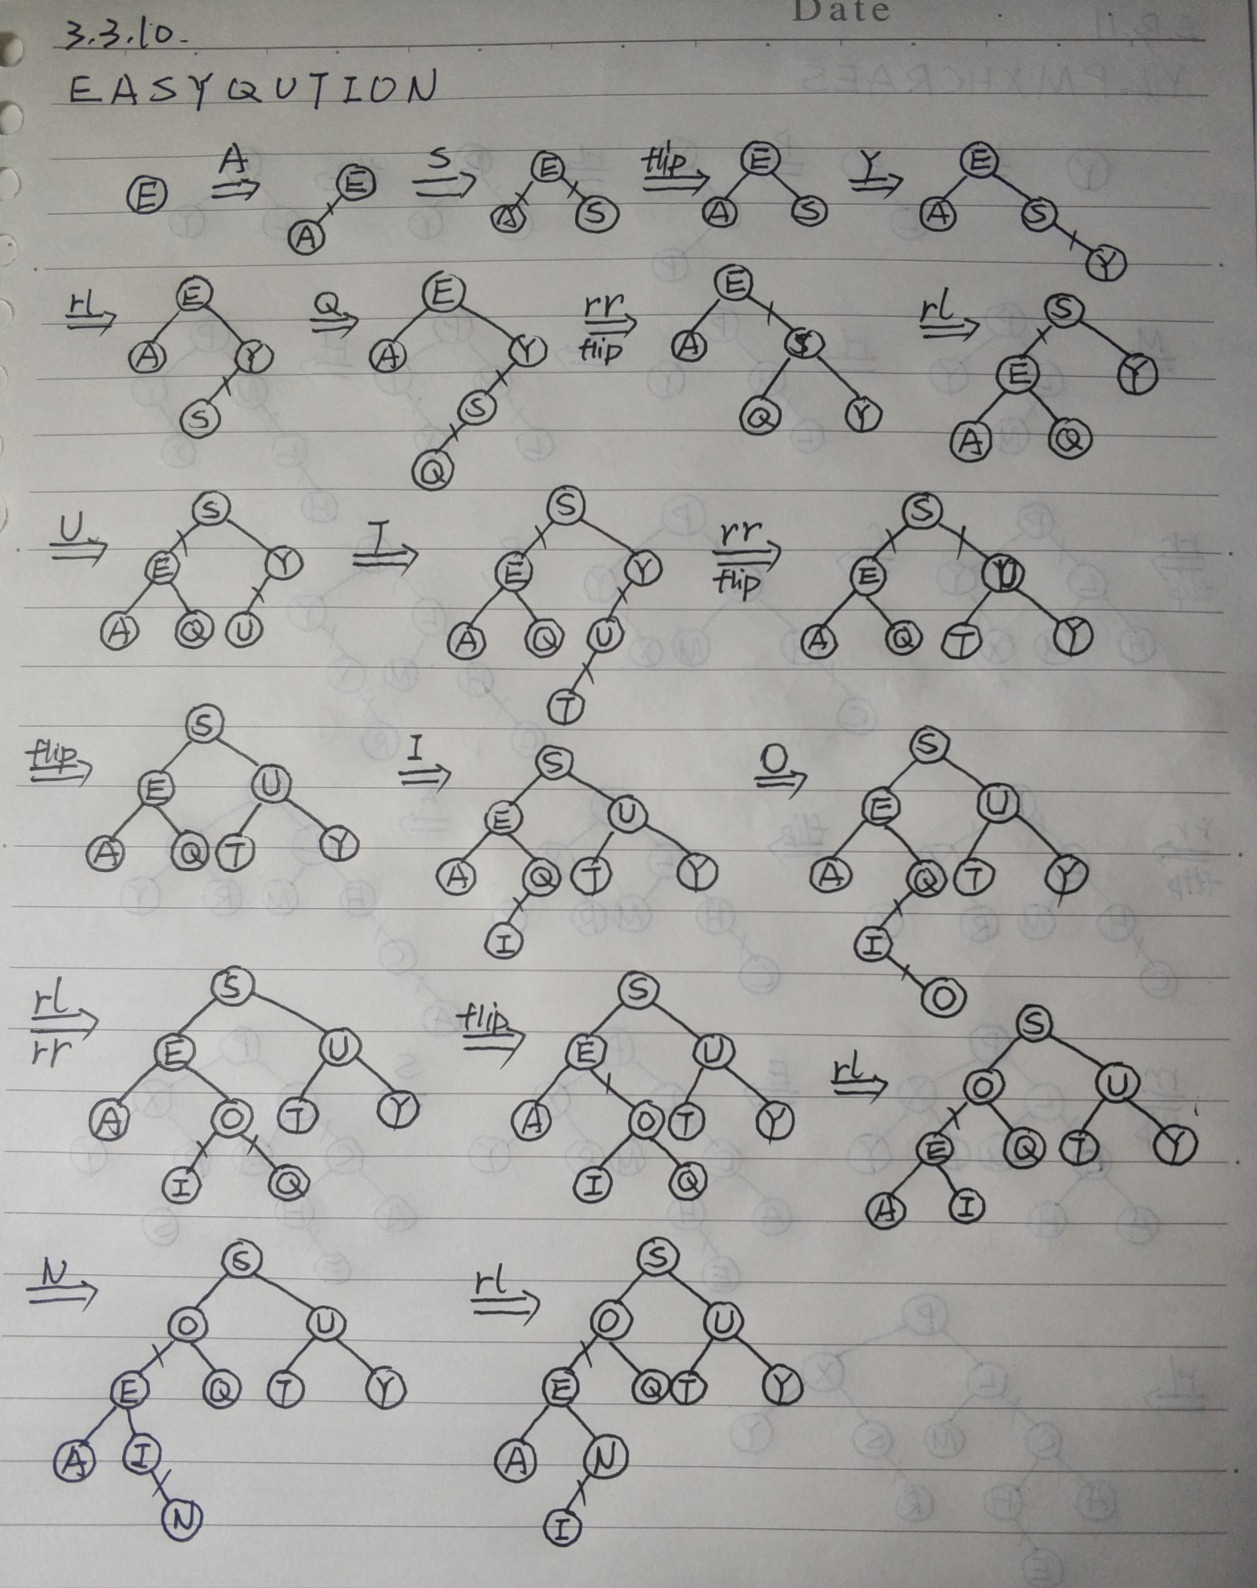 Date
3.3.10.
EASYQUTION
E A E A S E A S flip E A S Y E A S Y
rl E A Y S Q E A Y S Q rr flip E A S Q Y rl S E Y A Q
U S E Y A Q U I S E Y A Q U T rr flip S E U A Q T Y
flip S E U A Q T Y I S E U A Q T Y I O S E U A Q T Y I O
rl rr S E U A O T Y I Q flip S E U A O T Y I Q rl S O U E Q T Y A I
N S O U E Q T Y A I N rl S O U E Q T Y A N I